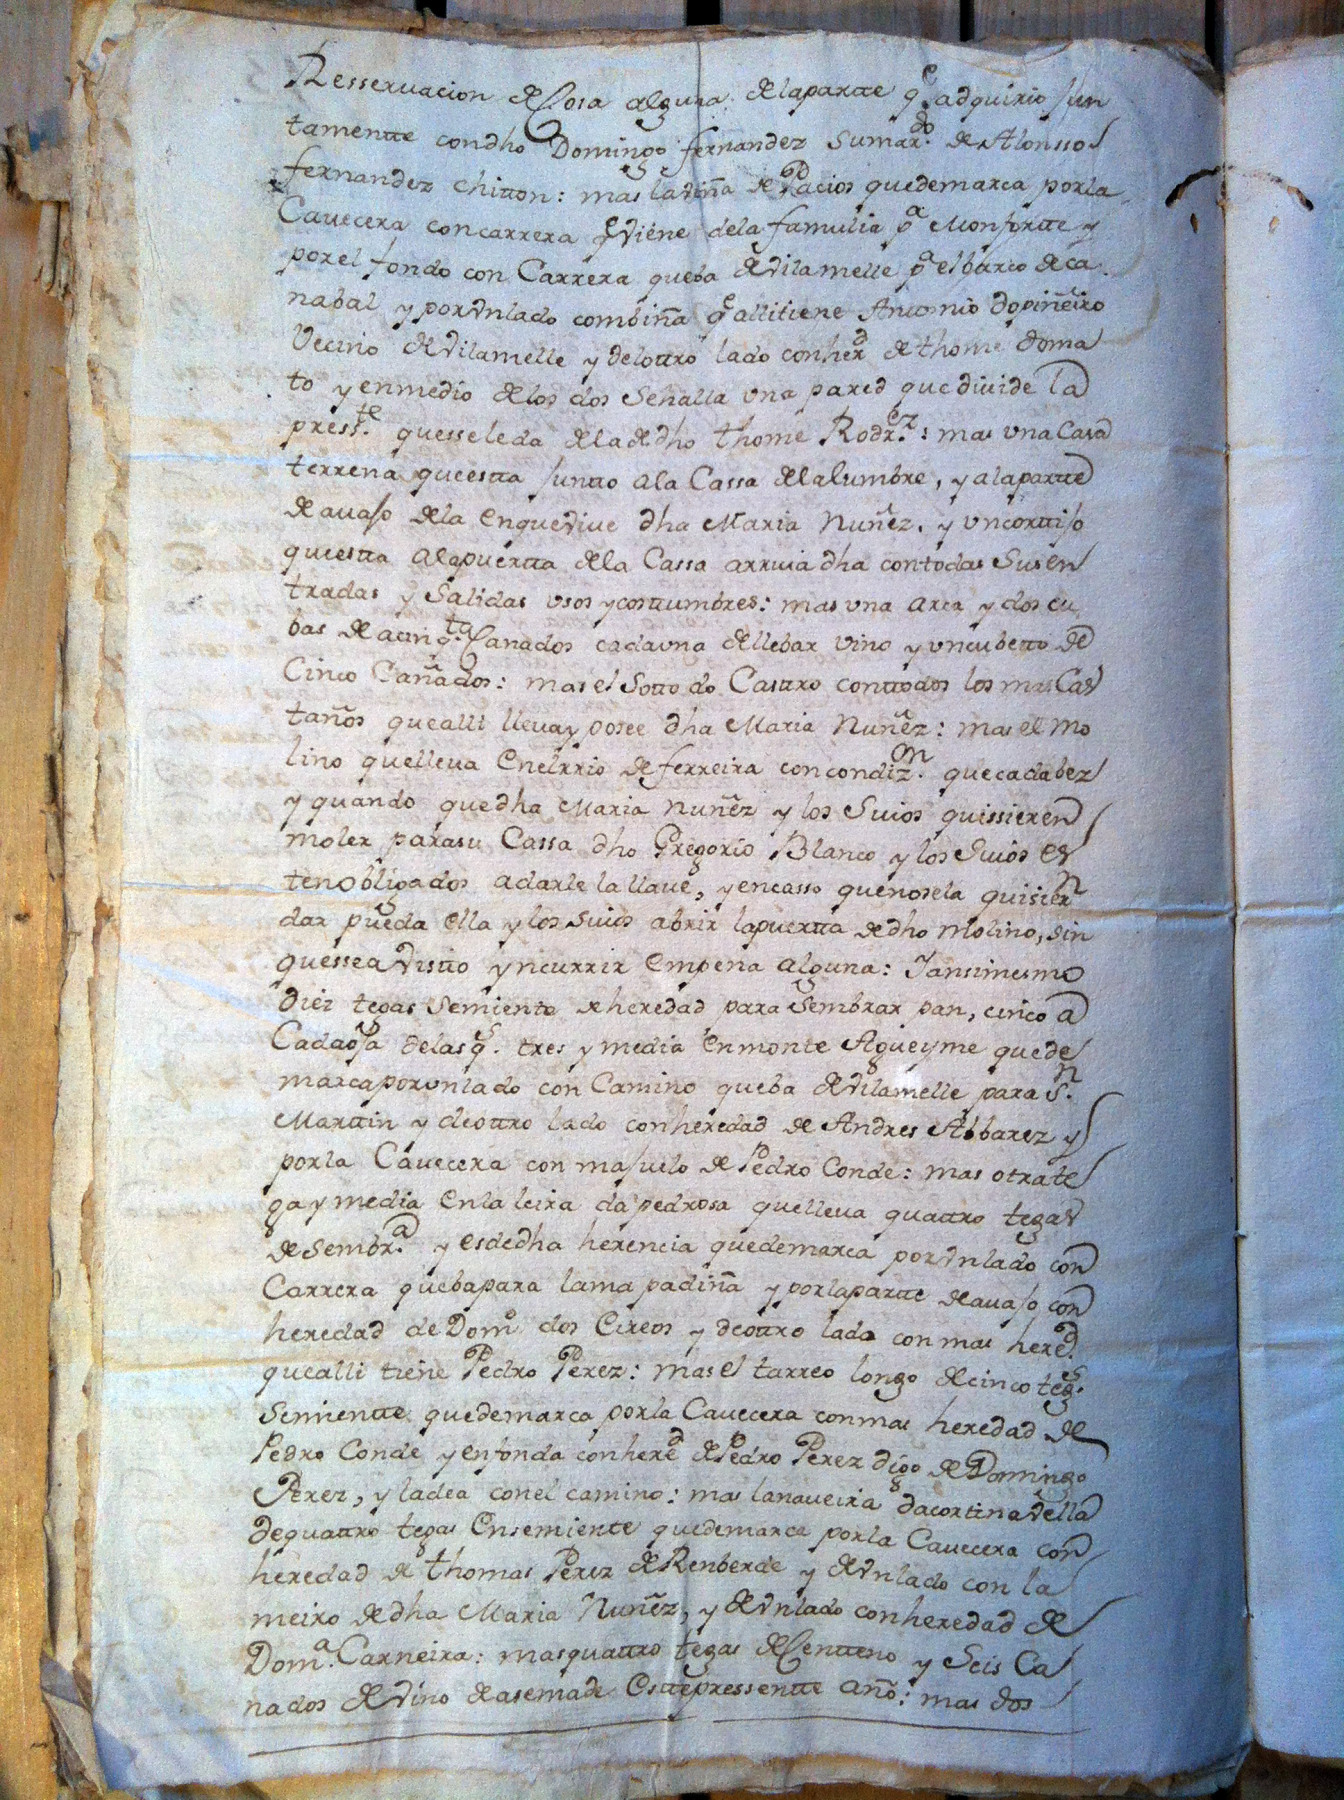 Resseruacion de Cosa alguna. delapartte q.e adquirio Jun
tamentte condho Domingo fernandez sumar.do de Alonsso
fernandez chitton: mas la viña de Pacios quedemarca porla
Cauecera concarrera q.e viene dela familia p.a Monfortte y
porel fondo con Carrera queba de vilamelle p.a elbarco de ca
nabal y por vnlado combiña q.e allitiene Antonio dopiñeiro
Vecino de vilamelle y delottro lado conher.d de thome doma
to y enmedio delos dos sehalla vna pared que diuide la
press.te quesseleda dela de dho thome Rodr.ez: mas vna Casa
terrena queestta Juntto ala Cassa delalumbre, y alapartte
de auaJo dela enquevive dha Maria Nuñez, y vncorttiJo
queestta alapuertta dela Cassa arriua dha contodas Susen
tradas y Salidas vsos ycosttumbres: mas vna arca y dos cu
bas de acinq.ta Canados cadauna dellebar vino y vncubetto de
Cinco Cañados: mas el Sotto do Casttro conttodos los mas Cas
taños quealli lleuay posee dha Maria Nuñez: mas el mo
lino quelleua Enelrrio de ferreira concondiz.on quecadabez
y quando quedha Maria nuñez y los Suios quissieren
moler parasu Cassa dho Gregorio Blanco y los Suios es
tenobligados adarle la llaue, y encasso quenosela quisier.n
dar pueda ella y los suios abrir lapuertta de dho molino, sin
quessea visto yncurrir Empena alguna: Iansimesmo
diez tegas semiente de heredad para sembrar pan, cinco a
Cada osa delas q.s tres y media enmonte Agueyme quede
marca porvnlado con Camino queba de vilamelle para S.n
Marttin y deottro lado conheredad de Andres Albarez y
porla Cauecera con maJuelo de Pedro Conde: mas otra te
ga y media enla leira da pedrosa quelleua quattro tegas
de sembr.a y esdedha herencia quedemarca porvnlado con
Carrera quebapara lama padiña y porlapartte de auaJo con
heredad de Dom.o dos Cireos y deottro lado con mas hered.d
quealli tiene Pedro Perez: mas el tarreo longo de cinco teg.s
semientte quedemarca porla Cauecera conmas heredad de
Pedro Conde y enfonda conhere.d de Pedro Perez digo de Domingo
Perez, y ladea conel camino: mas lanaueira dacortina vella
dequattro tegas Ensemiente quedemarca porla Cauecera con
heredad de thomas Perez de Renberde y de vnlado con la
meiro de dha Maria Nuñez, y de vnlado conheredad de
Dom.a Carneira: mas quattro tegas de Centteno y Seis Ca
nados de vino deasemade Esttepressentte año: mas dos